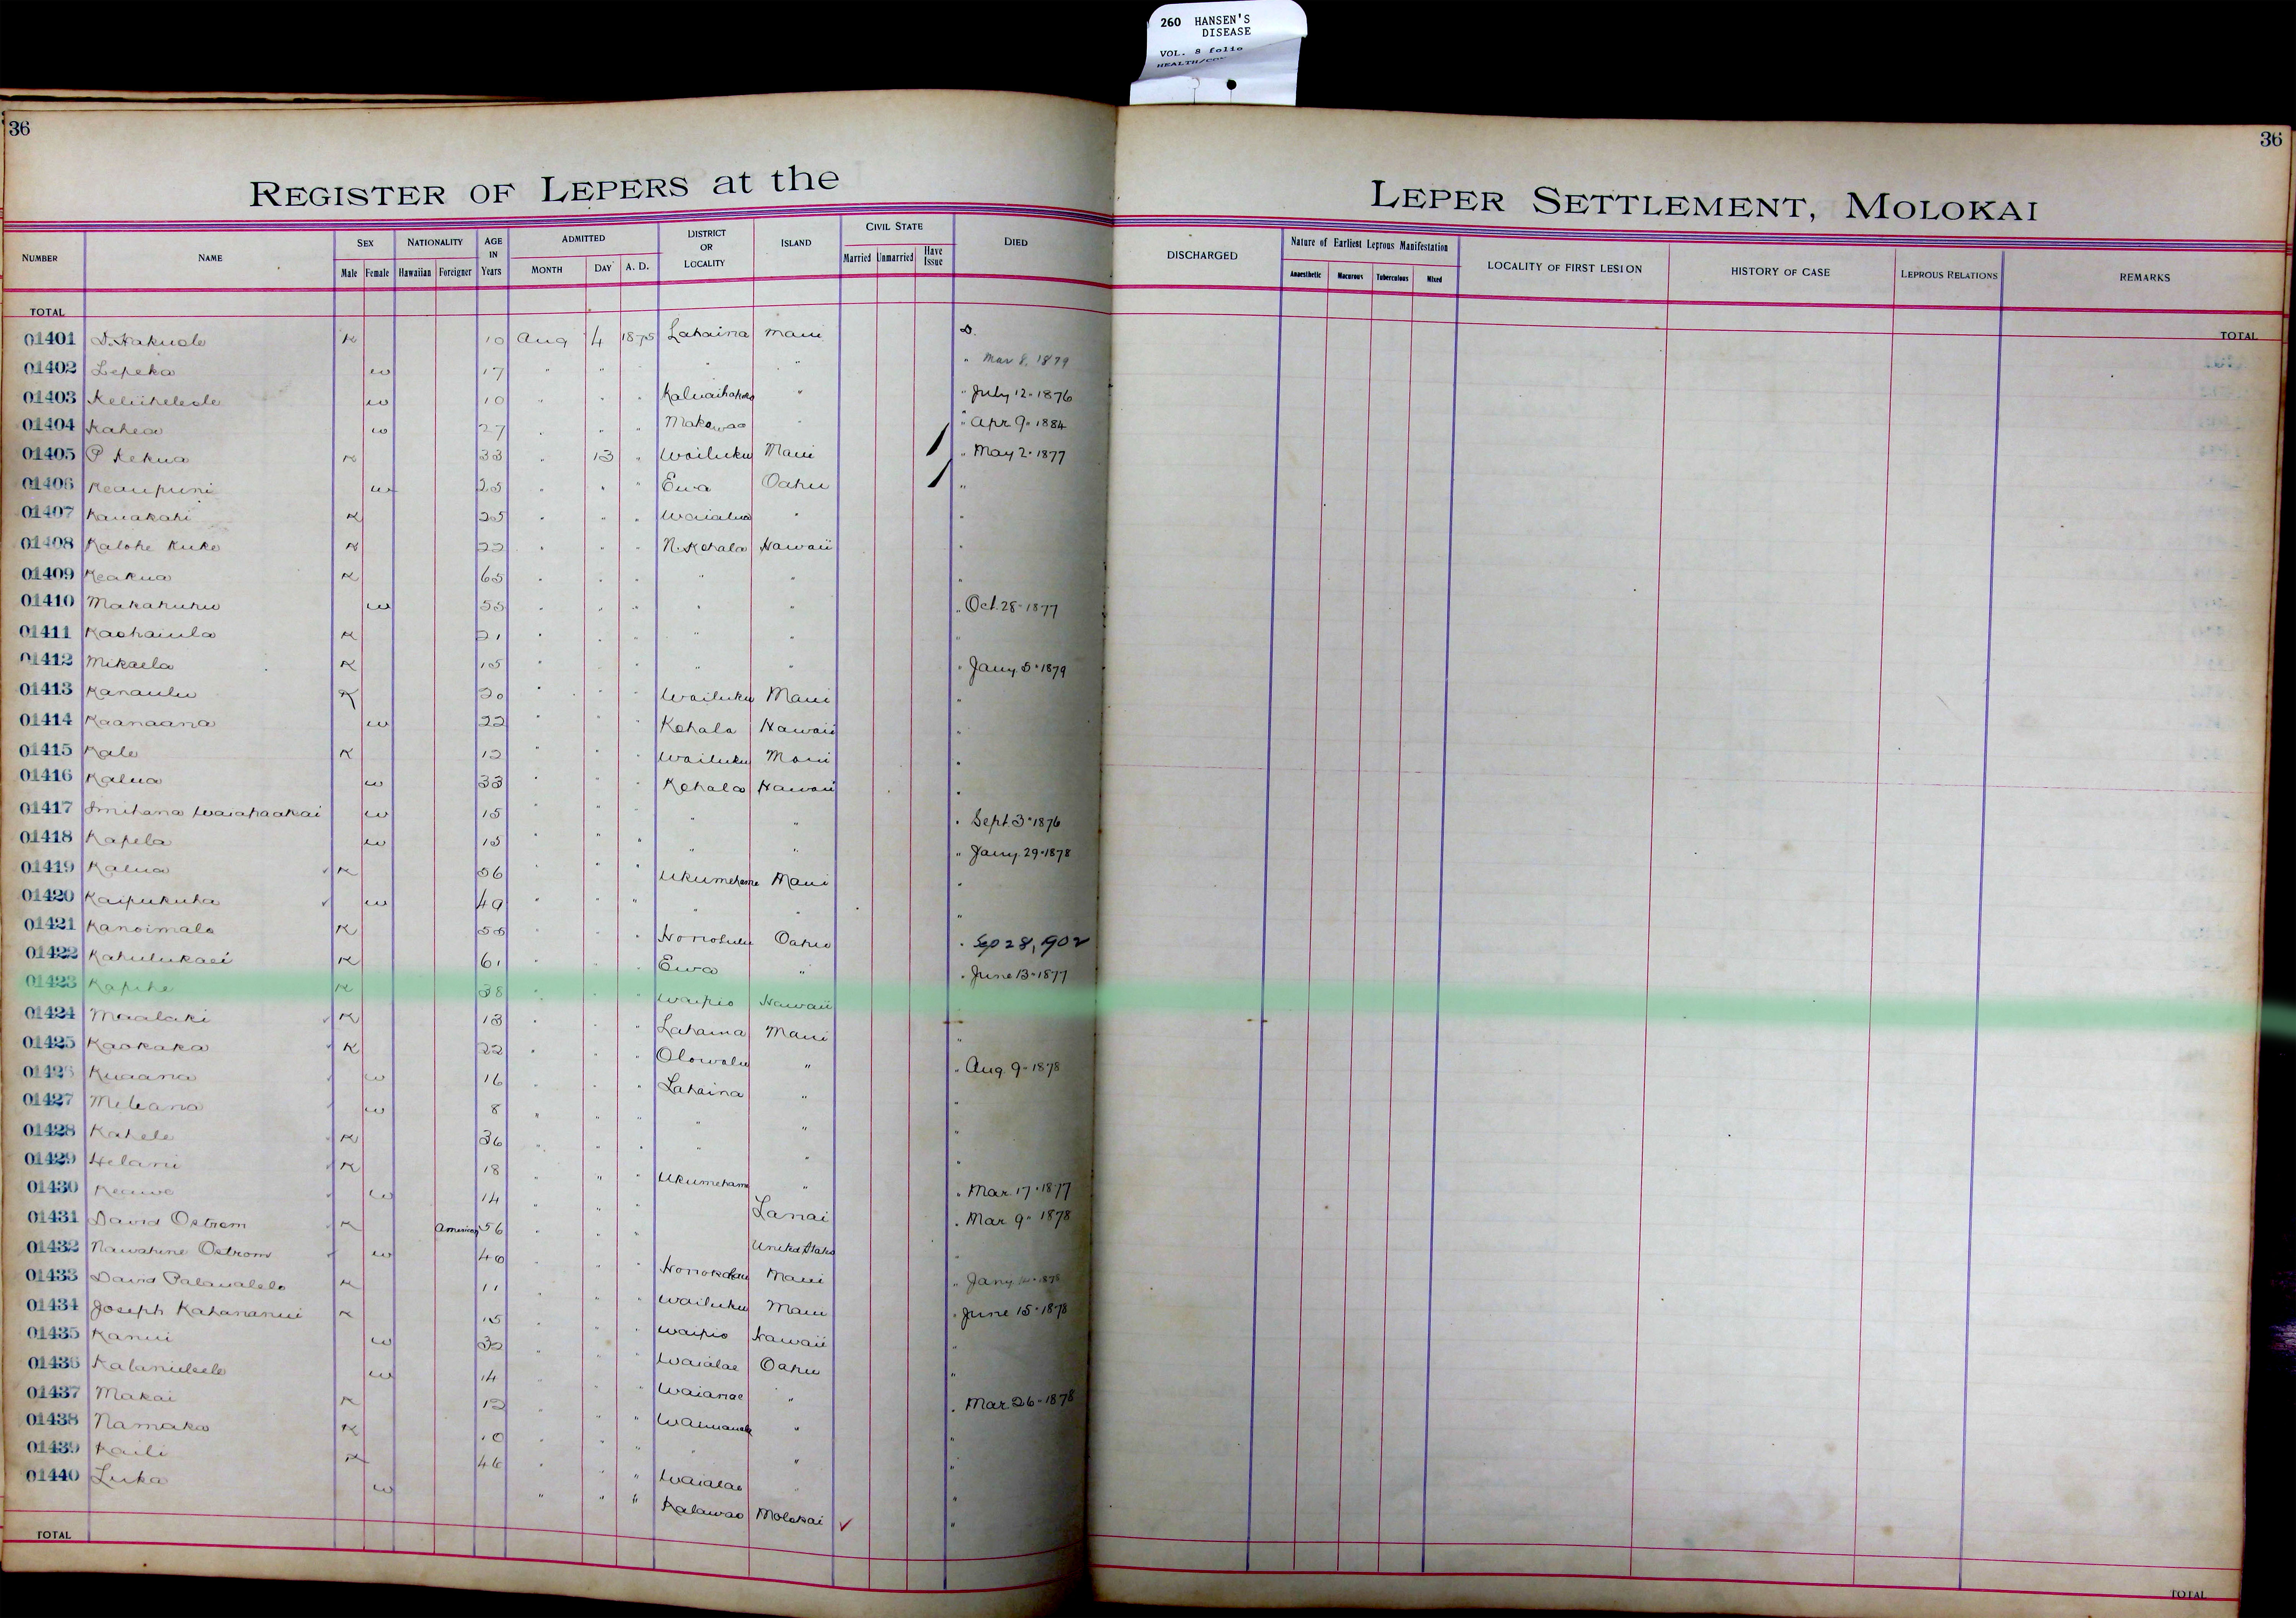 260 HANSEN'S
DISEASE
VOL. 8 folio
36
36
REGISTER OF LEPERS at the LEPER SETTLEMENT, MOLOKAI
NUMBER NAME SEX Male Female NATIONALITY Hawaiian Foreigner AGE IN Years ADMITTED MONTH DAY A. D. DISTRICT OR LOCALITY ISLAND CIVIL STATE Married Unmarried Have Issue DIED DISCHARGED Nature of Earliest Leprous Manifestation Anaesthetic Macurous Tuberculous Mixed LOCALITY OF FIRST LESION HISTORY OF CASE LEPROUS RELATIONS REMARKS
TOTAL TOTAL
01401 D. Hakuole K 10 Aug 14 1875 Lahaina Maui D.
01402 Lepeka w 17 " " " " " " Mar 8. 1879
01403 Keliiheleole w 10 " " " " " July 12. 1876
01404 Kahea w 27 " " " Makawao " " Apr 9. 1884
01405 P Kekua K 33 " 13 " Wailuku Maui " May 2. 1877
01406 Keaupuni w 25 " " " Ewa Oahu "
01407 Kauakahi K 25 " " " Waialua " "
01408 Kalohe Kuke K 22 " " " N. Kohala Hawaii "
01409 Keakua K 65 " " " " " "
01410 Makahuhu w 55 " " " " " " Oct. 28. 1877
01411 Kaohaiula K 21 " " " " " "
01412 Mikaela K 15 " " " " " " Jany 5. 1879
01413 Kanaulu K 20 " " " Wailuku Maui "
01414 Kaanaana w 22 " " " Kohala Hawaii "
01415 Kale K 12 " " " Wailuku Maui "
01416 Kalua w 33 " " " Kohala Hawaii "
01417 Waiahaakai w 15 " " " " " " Sept. 3. 1876
01418 Kapela w 15 " " " " " " Jany. 29. 1878
01419 Kalua K 56 " " " Ukumehame Maui "
01420 Kaipukuha w 49 " " " " " "
01421 Kanoimalo K 55 " " " Honolulu Oahu " Sep 28, 1902
01422 Kahulukaei K 61 " " " Ewa " " June 13. 1877
01423 Kapihe K 38 " " " Waipio Hawaii
01424 Maalaki K 13 " " " Lahaina Maui "
01425 Kaokaka K 22 " " " Olowalu " " Aug. 9. 1878
01426 Kuaana w 16 " " " Lahaina " "
01427 Meleana w 8 " " " " " "
01428 Kahele K 36 " " " " " "
01429 Helani K 18 " " " Ukumehame " " Mar. 17. 1877
01430 Keawe w 14 " " " Lanai " Mar. 9. 1878
01431 David Ostrom K American 56 " " " United States "
01432 Nawahine Ostrom w 40 " " " Maui " Jany 1878
01433 David Palaualelo K 11 " " " Wailuku Maui " June 15. 1878
01434 Joseph Kahananui K 15 " " " Waipio Hawaii "
01435 Kanui w 32 " " " Waialae Oahu "
01436 Kalanileele w 14 " " " Waianae " " Mar. 26. 1878
01437 Makai K 12 " " " " "
01438 Namaka K 10 " " " " " "
01439 Kaili K 46 " " " Waialae " "
01440 Luka w " " " Kalawao Molokai "
TOTAL TOTAL